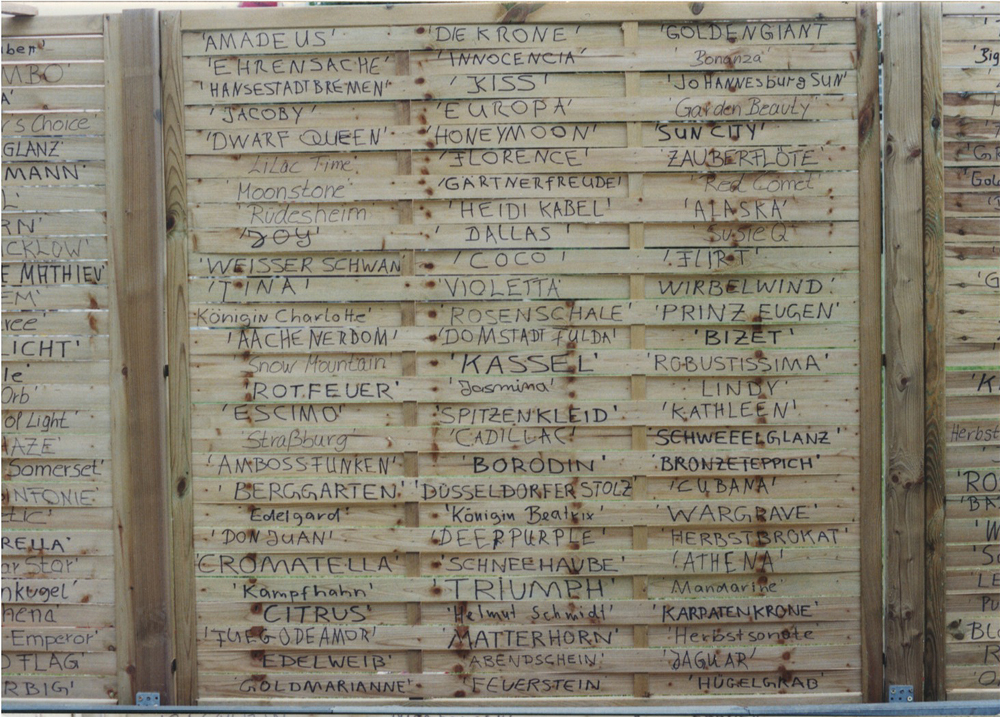 'AMADEUS' 'DIE KRONE' 'GOLDENGIANT
'EHRENSACHE' 'INNOCENCIA' Bonanza'
'HANSESTADTBREMEN' 'KISS' 'JOHANNESburg SUN'
'JACOBY' 'EUROPA' 'Garden Beauty'
'DWARF QUEEN' 'HONEYMOON' 'SUN CITY'
Lilac Time' 'FLORENCE' ZAUBERFLÖTE'
Moonstone' 'GÄRTNERFREUDE' 'Red Comet'
'Rüdesheim 'HEIDI KABEL' 'ALASKA'
'JOY' DALLAS' 'Susie Q'
'WEISSER SCHWAN' 'COCO' 'FLIRT'
'TINA' 'VIOLETTA' WIRBELWIND'
Königin Charlotte' 'ROSENSCHALE' 'PRINZ EUGEN'
'AACHENERDOM' 'DOMSTADT FULDA' 'BIZET'
'Snow Mountain 'KASSEL' 'ROBUSTISSIMA'
'ROTFEUER' 'Jasmina' 'LINDY'
'ESCIMO' 'SPITZENKLEID' 'KATHLEEN'
Straßburg' 'CADILLAC' 'SCHWEEELGLANZ'
'AMBOSSFUNKEN' 'BORODIN' 'BRONZETEPPICH'
'BERGGARTEN' 'DÜSSELDORFER STOLZ' 'CUBANA'
Edelgard' 'Königin Beatrix' 'WARGRAVE'
'DON JUAN' 'DEEPPURPLE' 'HERBSTBROKAT'
'CROMATELLA' 'SCHNEEHAUBE' 'ATHENA'
'Kampfhahn' 'TRIUMPH' 'Mandarine'
'CITRUS' 'Helmut Schmidt' 'KARPATENKRONE'
'FUEGODEAMOR' 'MATTERHORN' 'Herbstsonate
'EDELWEIß' 'ABENDSCHEIN' 'JAGUAR'
'GOLDMARIANNE' 'FEUERSTEIN 'HÜGELGRAB'